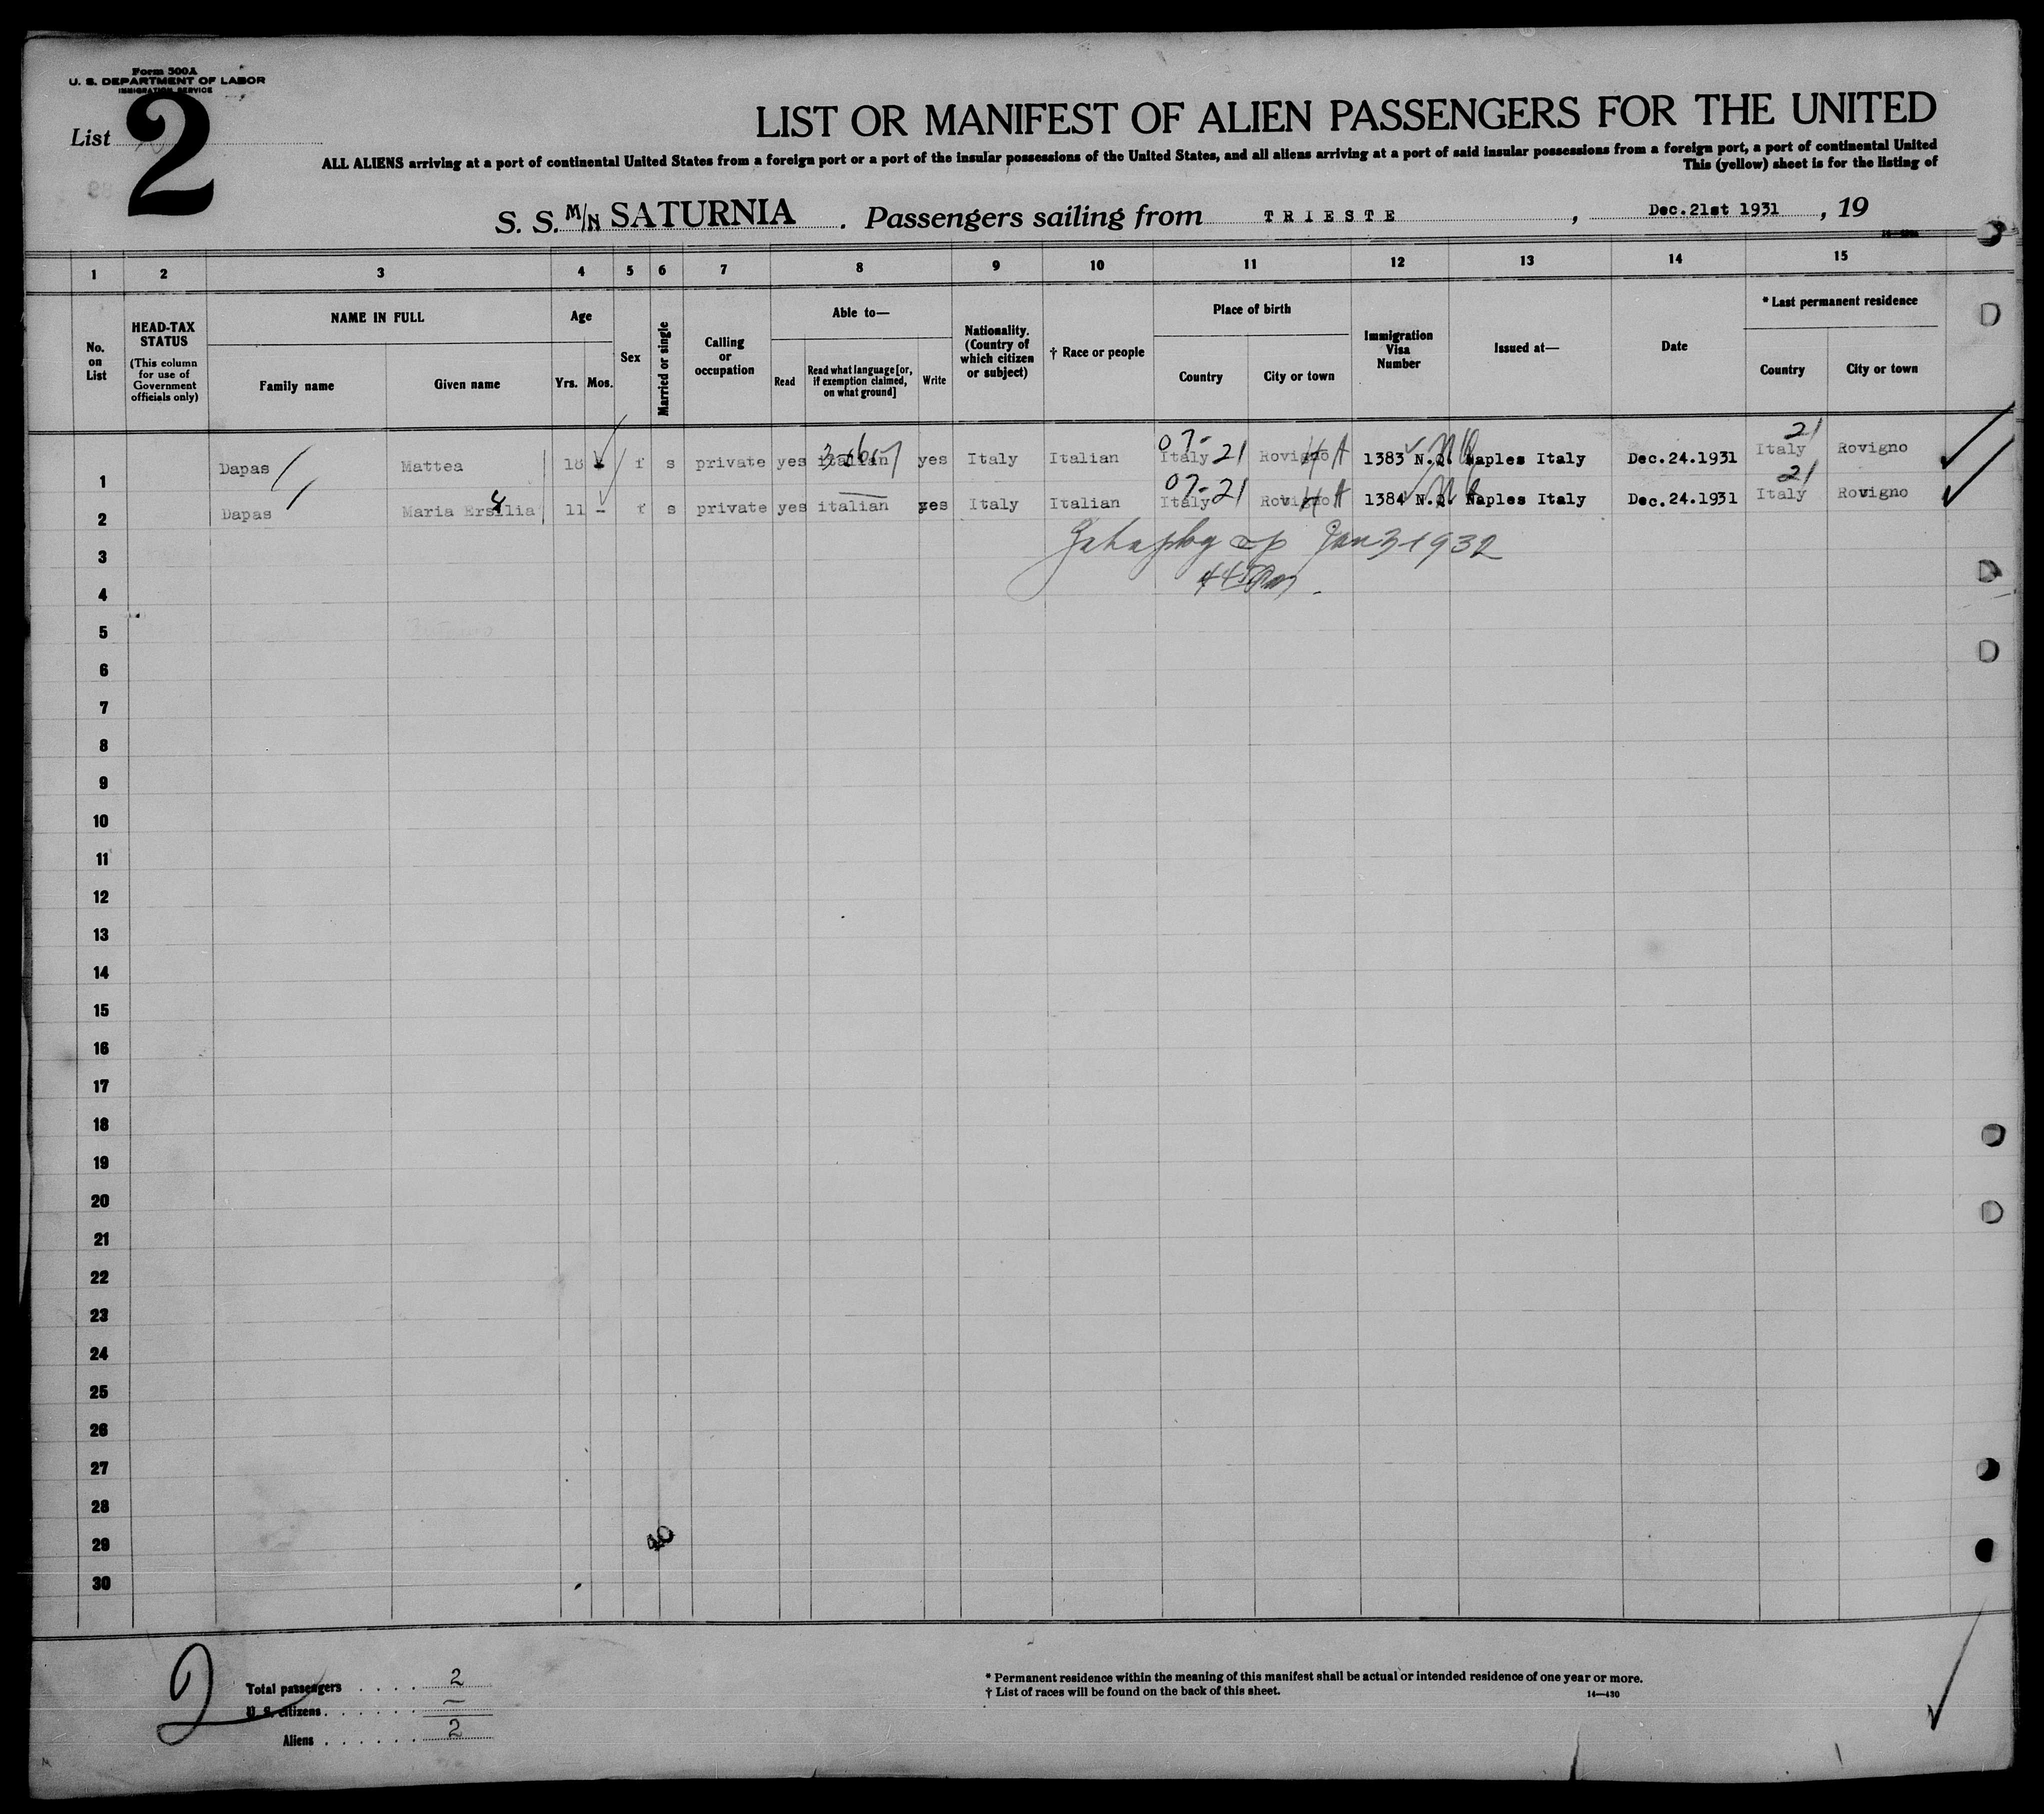 Form 500A
U. S. DEPARTMENT OF LABOR
IMMIGRATION SERVICE
List 2
LIST OR MANIFEST OF ALIEN PASSENGERS FOR THE UNITED
ALL ALIENS arriving at a port of continental United States from a foreign port or a port of the insular possessions of the United States, and all aliens arriving at a port of said insular possessions from a foreign port, a port of continental United
This (yellow) sheet is for the listing of
S. S. M/N SATURNIA. Passengers sailing from TRIESTE, Dec.21st 1931, 19
1 2 3 4 5 6 7 8 9 10 11 12 13 14 15
No. on List
HEAD-TAX STATUS
(This column for use of Government officials only)
NAME IN FULL
Family name Given name
Age
Yrs. Mos.
Sex
Married or single
Calling or occupation
Able to—
Read
Read what language [or, if exemption claimed, on what ground]
Write
Nationality. (Country of which citizen or subject)
† Race or people
Place of birth
Country City or town
Immigration Visa Number
Issued at—
Date
* Last permanent residence
Country City or town
07- 21 21
1 Dapas Mattea 18 f s private yes italian yes Italy Italian Italy Rovigno 1383 N.Q. Naples Italy Dec.24.1931 Italy Rovigno
07-21 21
2 Dapas Maria Ersilia 11 - f s private yes italian yes Italy Italian Italy Rovigno 1384 N.Q. Naples Italy Dec.24.1931 Italy Rovigno
3 Jan 3 1932
4
5
6
7
8
9
10
11
12
13
14
15
16
17
18
19
20
21
22
23
24
25
26
27
28
29
30
40
2
Total passengers . . . . . 2
U. S. citizens . . . . . . —
Aliens . . . . . . 2
* Permanent residence within the meaning of this manifest shall be actual or intended residence of one year or more.
† List of races will be found on the back of this sheet.
14—430